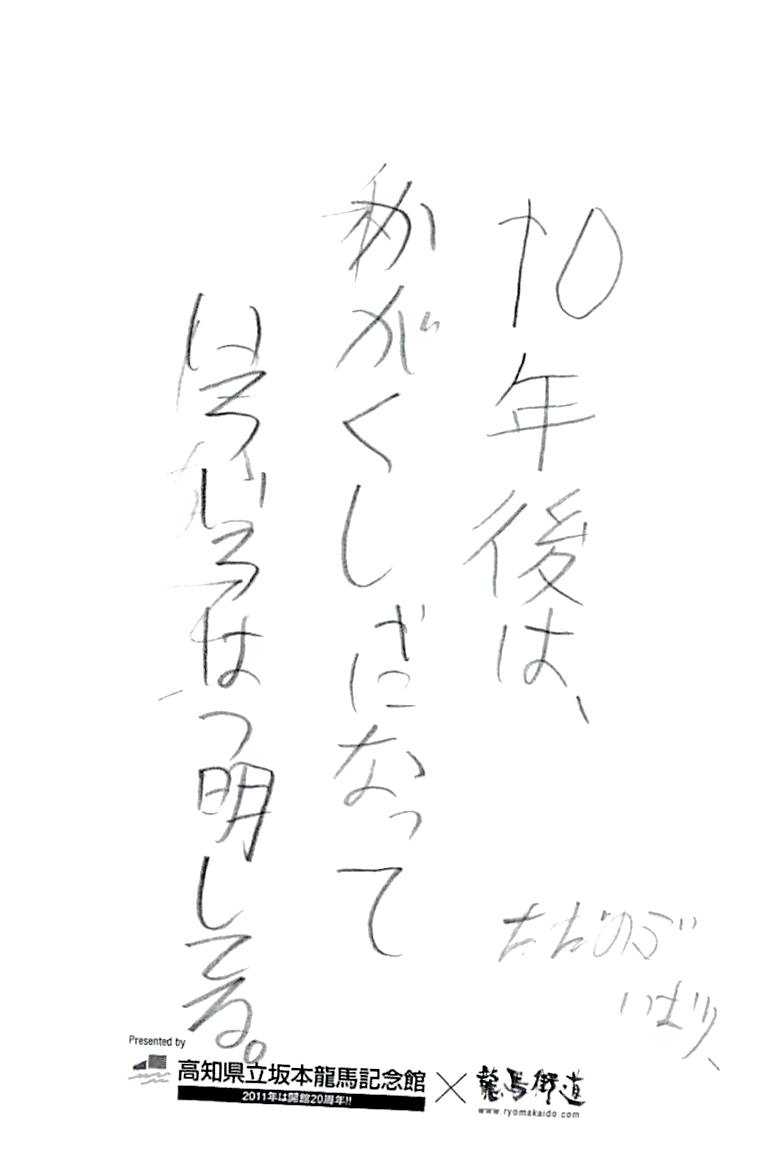 十〇年後は、
私がくしゃになって
いろいろなつ明してる。
ただのぶ
Presented by
高知県立坂本龍馬記念館 × 龍馬街道
2011年は開館20周年!!
www.ryomakaido.com